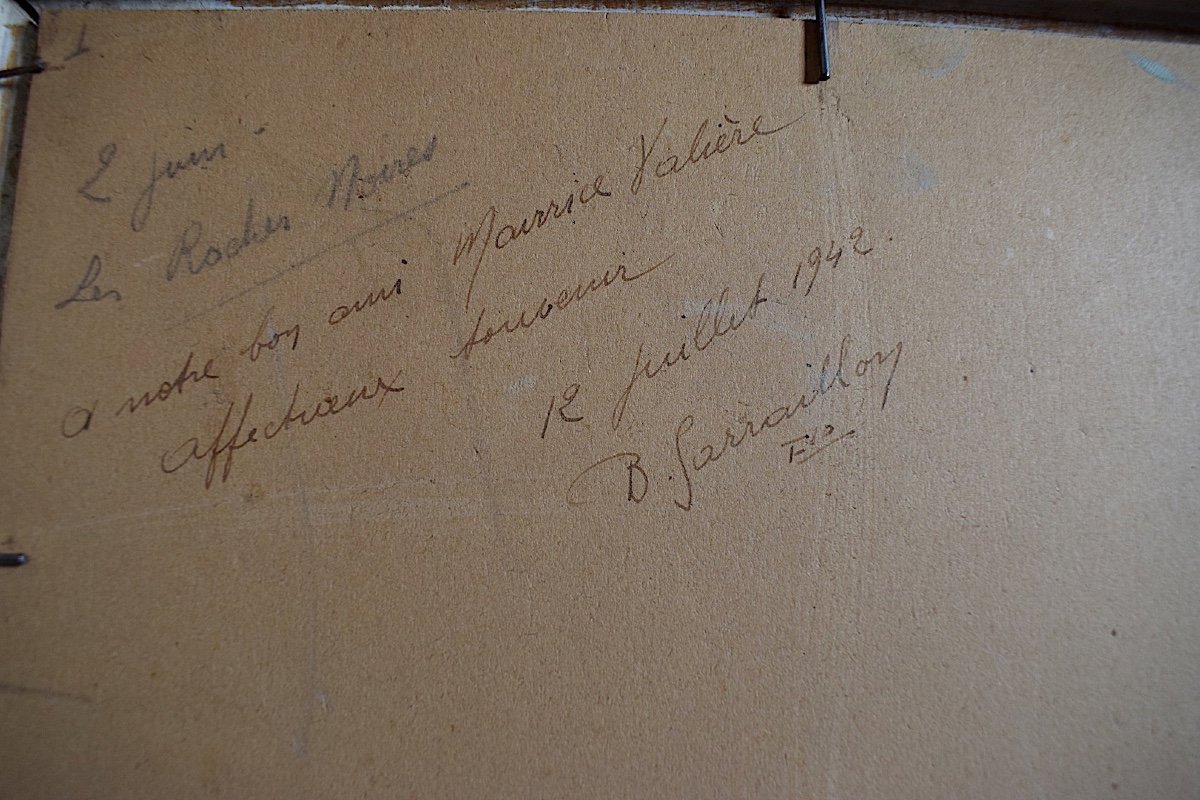 1
2 juin
Les Roches Noires
a notre bon ami Maurice Valière
affectueux souvenir
12 juillet 1942.
B. Sarraillon